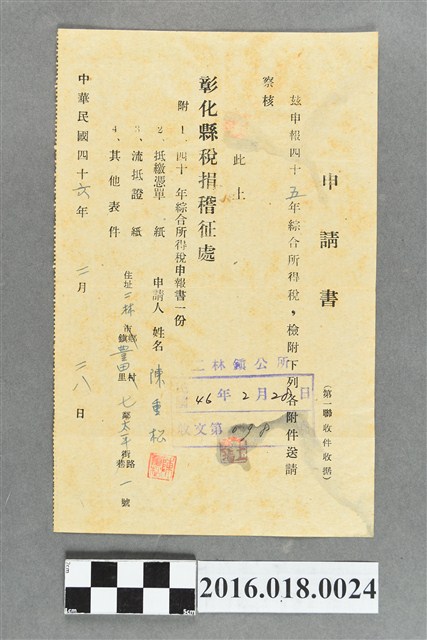 申請書
(第一聯收件收据)
茲申報四十五年綜合所得稅，檢附下列各附件送請
察核
此上
彰化縣稅捐稽征處
附 1、四十 年綜合所得稅申報書一份
2、抵繳憑單 紙
3、流抵證 紙
4、其他表件
申請人 姓名 陳重松
住址 二林 鄉鎮 豐田 村里 七鄰 太平 街路巷 一 號
中華民國四十六年 二月 二八日
二林鎮公所
46年2月28日
收文第 098
2016.018.0024
0cm
5cm